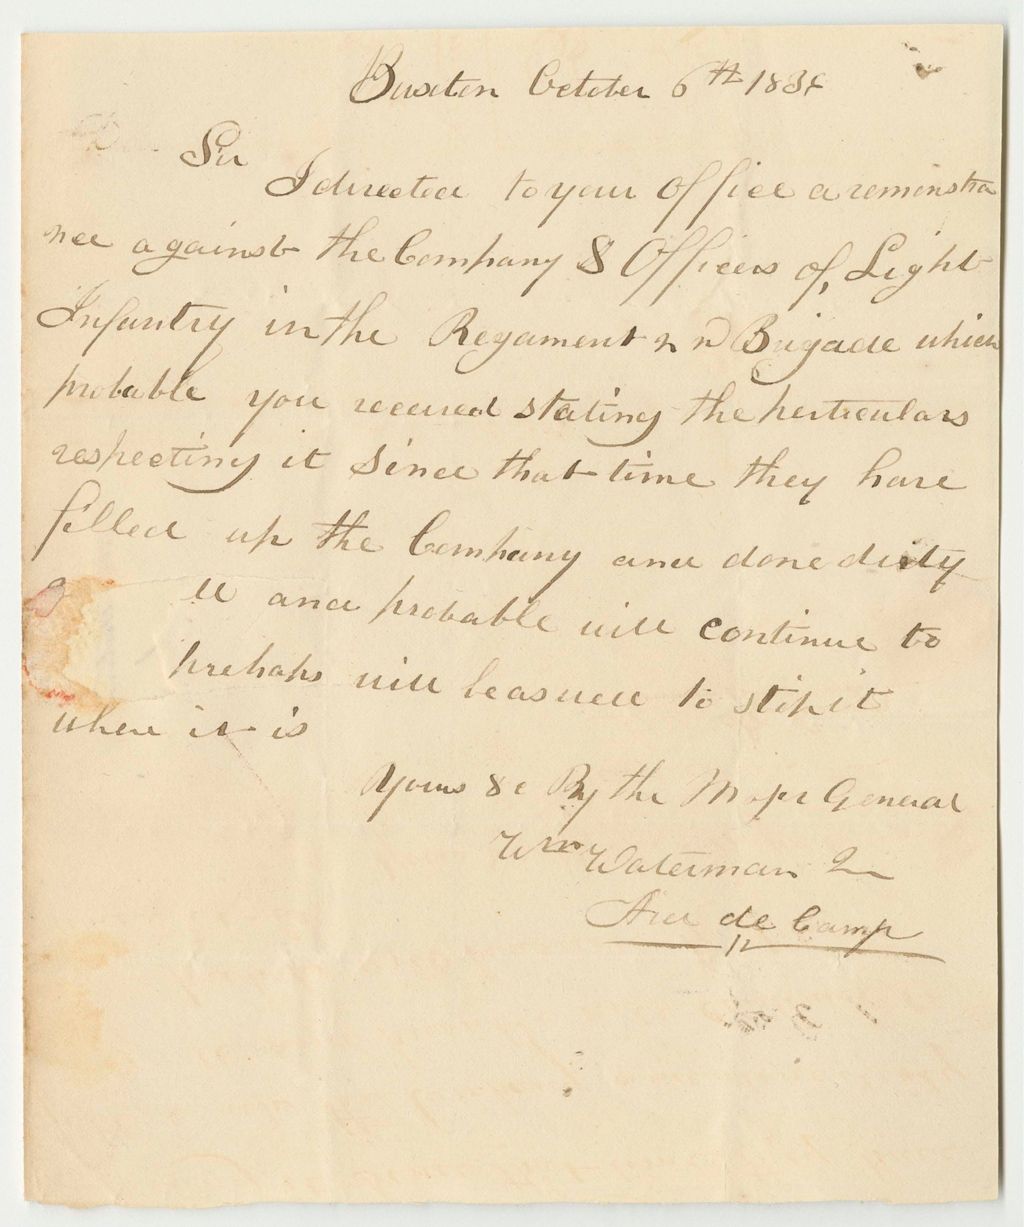 Buxton October 6th 183
Sir
I directed to your Office a remonstra
nce against the Company & Officers of Light
Infantry in the Regament Brigade which
probable you received stating the perticulars
respecting it Since that time they have
filled up the Company and done duty
and probable will continue to
prehaps will be as well to
where it is
Yours &c By the Major General
Wm Waterman
Aid de Camp